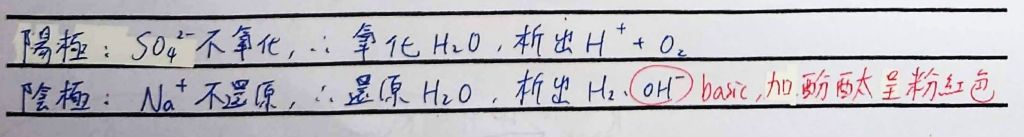 陽極：SO₄²⁻不氧化，∴氧化H₂O，析出H⁺+O₂
陰極：Na⁺不還原，∴還原H₂O，析出H₂、OH⁻ basic，加酚酞呈粉紅色